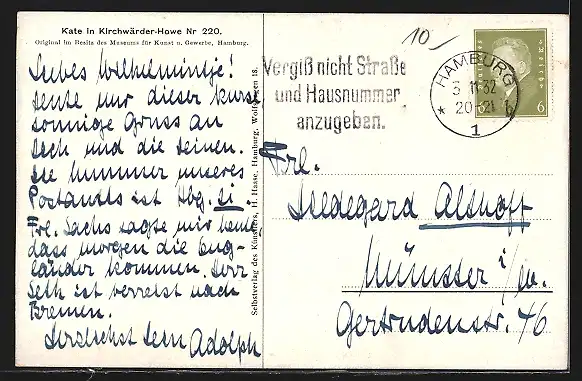 Kate in Kirchwärder-Howe Nr 220.
Original im Besitz des Museums für Kunst u. Gewerbe, Hamburg.
Liebes Wilhelmintje!
Heute nur dieser kurze
sonnige Gruss an
Dich und die Deinen.
Die Nummer unseres
Postamts ist Hbg. 21.
Frl. Sachs sagte mir heute,
dass morgen die Eng-
länder kommen. Herr
Seth ist verreist nach
Bremen.
Herzlichst Dein Adolph
Selbstverlag des Künstlers, H. Haase, Hamburg, Wolfshagen 18.
10
Vergiß nicht Straße
und Hausnummer
anzugeben.
HAMBURG
3 11 32
20-21
* 1
6 6
Frl.
Hildegard Althoff
Münster i/W.
Gertrudenstr. 46